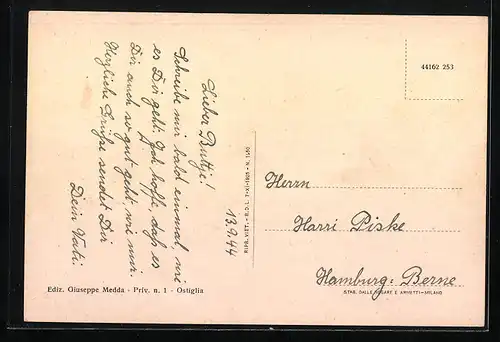 Lieber Buttje!
13.9.44
Schreibe mir bald einmal, wie
es Dir geht. Ich hoffe, daß es
Dir auch so gut geht wie mir.
Herzliche Grüße sendet Dir
Dein Vati.
44162 253
Herrn
Harri Piske
Hamburg: Berne
RIPR. VIET. - R.D.L. 7-XI-1925 - N. 1950
Ediz. Giuseppe Medda - Priv. n. 1 - Ostiglia
STAB. DALLE NOGARE E ARMETTI - MILANO